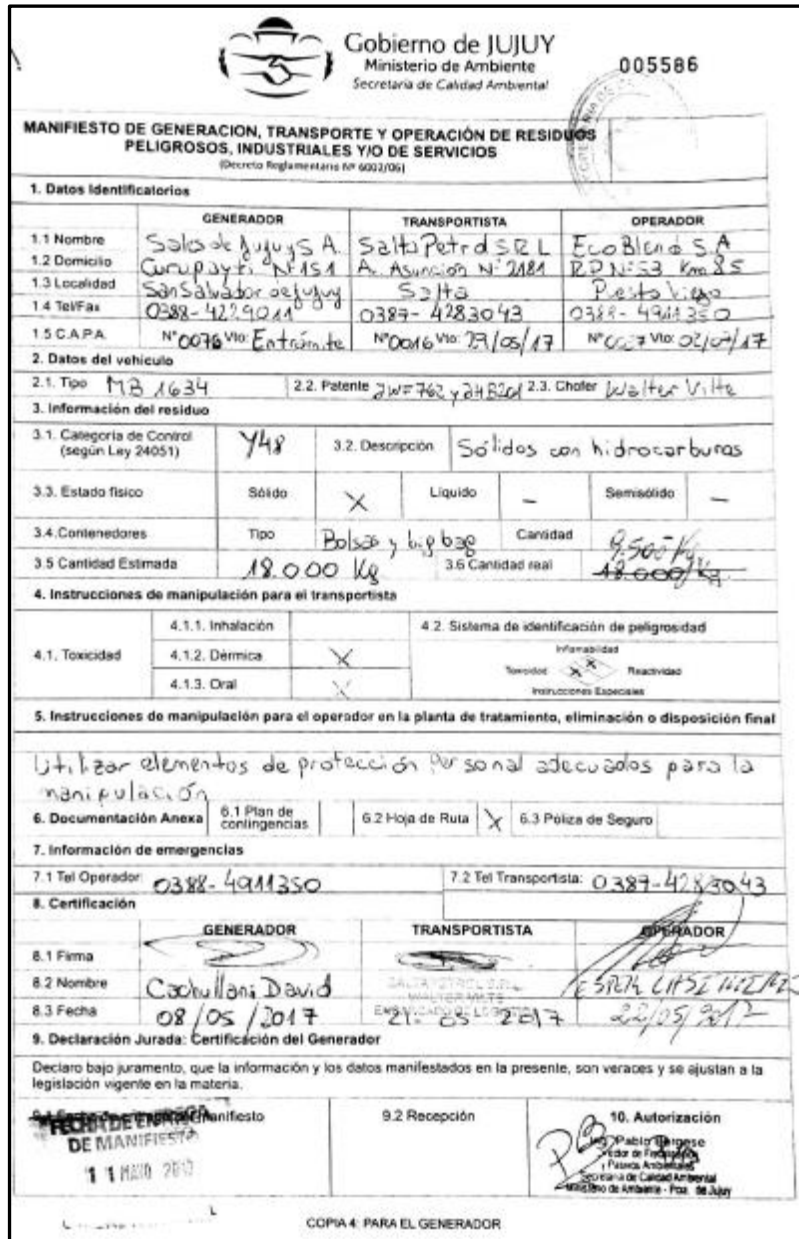 Gobierno de JUJUY
Ministerio de Ambiente
Secretaría de Calidad Ambiental
005586
MANIFIESTO DE GENERACION, TRANSPORTE Y OPERACIÓN DE RESIDUOS
PELIGROSOS, INDUSTRIALES Y/O DE SERVICIOS
(Decreto Reglamentario Nº 6002/06)
1. Datos Identificatorios
GENERADOR TRANSPORTISTA OPERADOR
1.1 Nombre Sales de Jujuy S A. Salta Petrol S R L Eco Blend S.A
1.2 Domicilio Curupayti Nº 151 A. Asunción Nº 2181 R.P Nº 53 Km 85
1.3 Localidad San Salvador de Jujuy Salta Puesto Viejo
1.4 Tel/Fax 0388-4229011 0387-4283043 0388-4911350
1.5 C.A.P.A. Nº 0076 Vto: En trámite Nº 0016 Vto: 29/05/17 Nº Vto: 02/07/17
2. Datos del vehículo
2.1. Tipo MB 1634 2.2. Patente JWF762 y JHB201 2.3. Chofer Walter Vilte
3. Información del residuo
3.1. Categoría de Control Y48 3.2. Descripción Sólidos con hidrocarburos
(según Ley 24051)
3.3. Estado físico Sólido X Líquido - Semisólido -
3.4. Contenedores Tipo Bolsas y big bag Cantidad
3.5 Cantidad Estimada 18.000 Kg 3.6 Cantidad real 9.500 Kg 18.000/Kg
4. Instrucciones de manipulación para el transportista
4.1. Toxicidad 4.1.1. Inhalación 4.2. Sistema de identificación de peligrosidad
4.1.2. Dérmica X
4.1.3. Oral X
Inflamabilidad
Toxicidad X X Reactividad
Instrucciones Especiales
5. Instrucciones de manipulación para el operador en la planta de tratamiento, eliminación o disposición final
Utilizar elementos de protección personal adecuados para la
manipulación
6. Documentación Anexa 6.1 Plan de contingencias 6.2 Hoja de Ruta X 6.3 Póliza de Seguro
7. Información de emergencias
7.1 Tel Operador: 0388-4911350 7.2 Tel Transportista: 0387-4283043
8. Certificación
GENERADOR TRANSPORTISTA OPERADOR
8.1 Firma
8.2 Nombre Cachullani David SALTA PETROL S.R.L.
WALTER VILTE
ENCARGADO DE LOGISTICA
8.3 Fecha 08/05/2017 21-05-2017 22/05/2017
9. Declaración Jurada: Certificación del Generador
Declaro bajo juramento, que la información y los datos manifestados en la presente, son veraces y se ajustan a la
legislación vigente en la materia.
manifiesto 9.2 Recepción 10. Autorización
FECHA DE ENTREGA
DE MANIFIESTO
11 MAYO
Ing. Pablo Bergese
Secretaria de Calidad Ambiental
Ministerio de Ambiente - Pcia. de Jujuy
COPIA 4: PARA EL GENERADOR